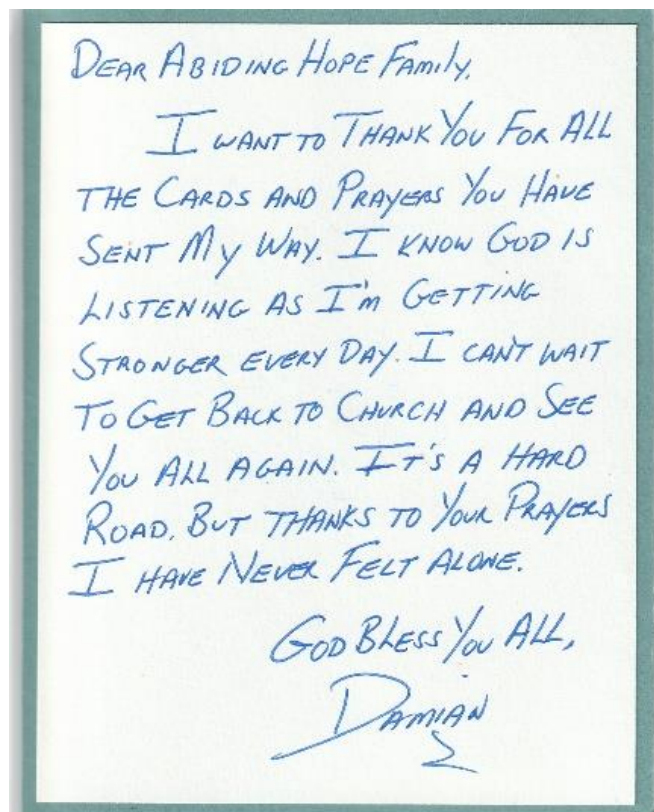 DEAR ABIDING HOPE FAMILY,
I WANT TO THANK YOU FOR ALL
THE CARDS AND PRAYERS YOU HAVE
SENT MY WAY. I KNOW GOD IS
LISTENING AS I'M GETTING
STRONGER EVERY DAY. I CAN'T WAIT
TO GET BACK TO CHURCH AND SEE
YOU ALL AGAIN. IT'S A HARD
ROAD, BUT THANKS TO YOUR PRAYERS
I HAVE NEVER FELT ALONE.
GOD BLESS YOU ALL,
DAMIAN